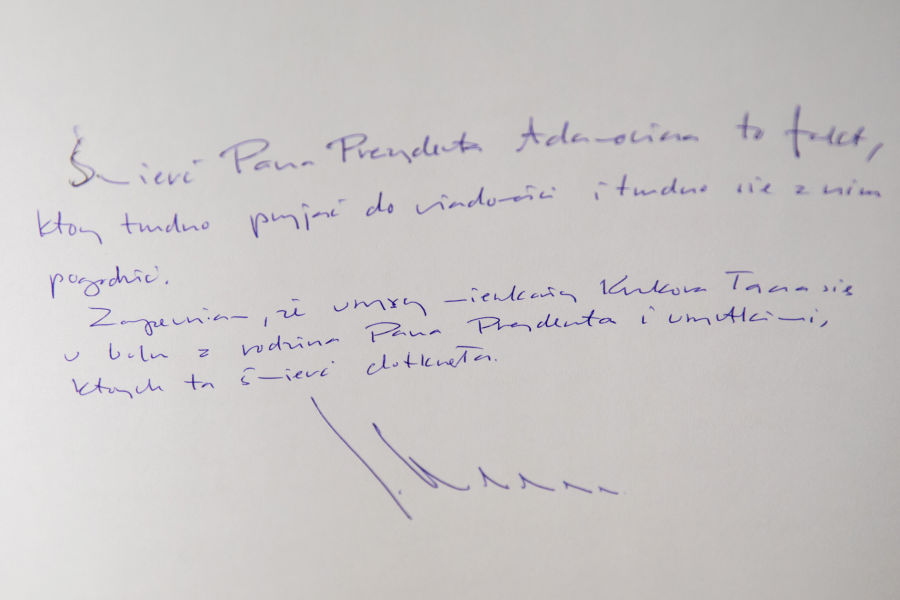 Śmierć Pana Prezydenta Adamowicza to fakt,
który trudno przyjąć do wiadomości i trudno się z nim
pogodzić.
Zapewniam, że wszyscy mieszkańcy Krakowa łączą się
w bólu z rodziną Pana Prezydenta i wszystkimi,
których ta śmierć dotknęła.